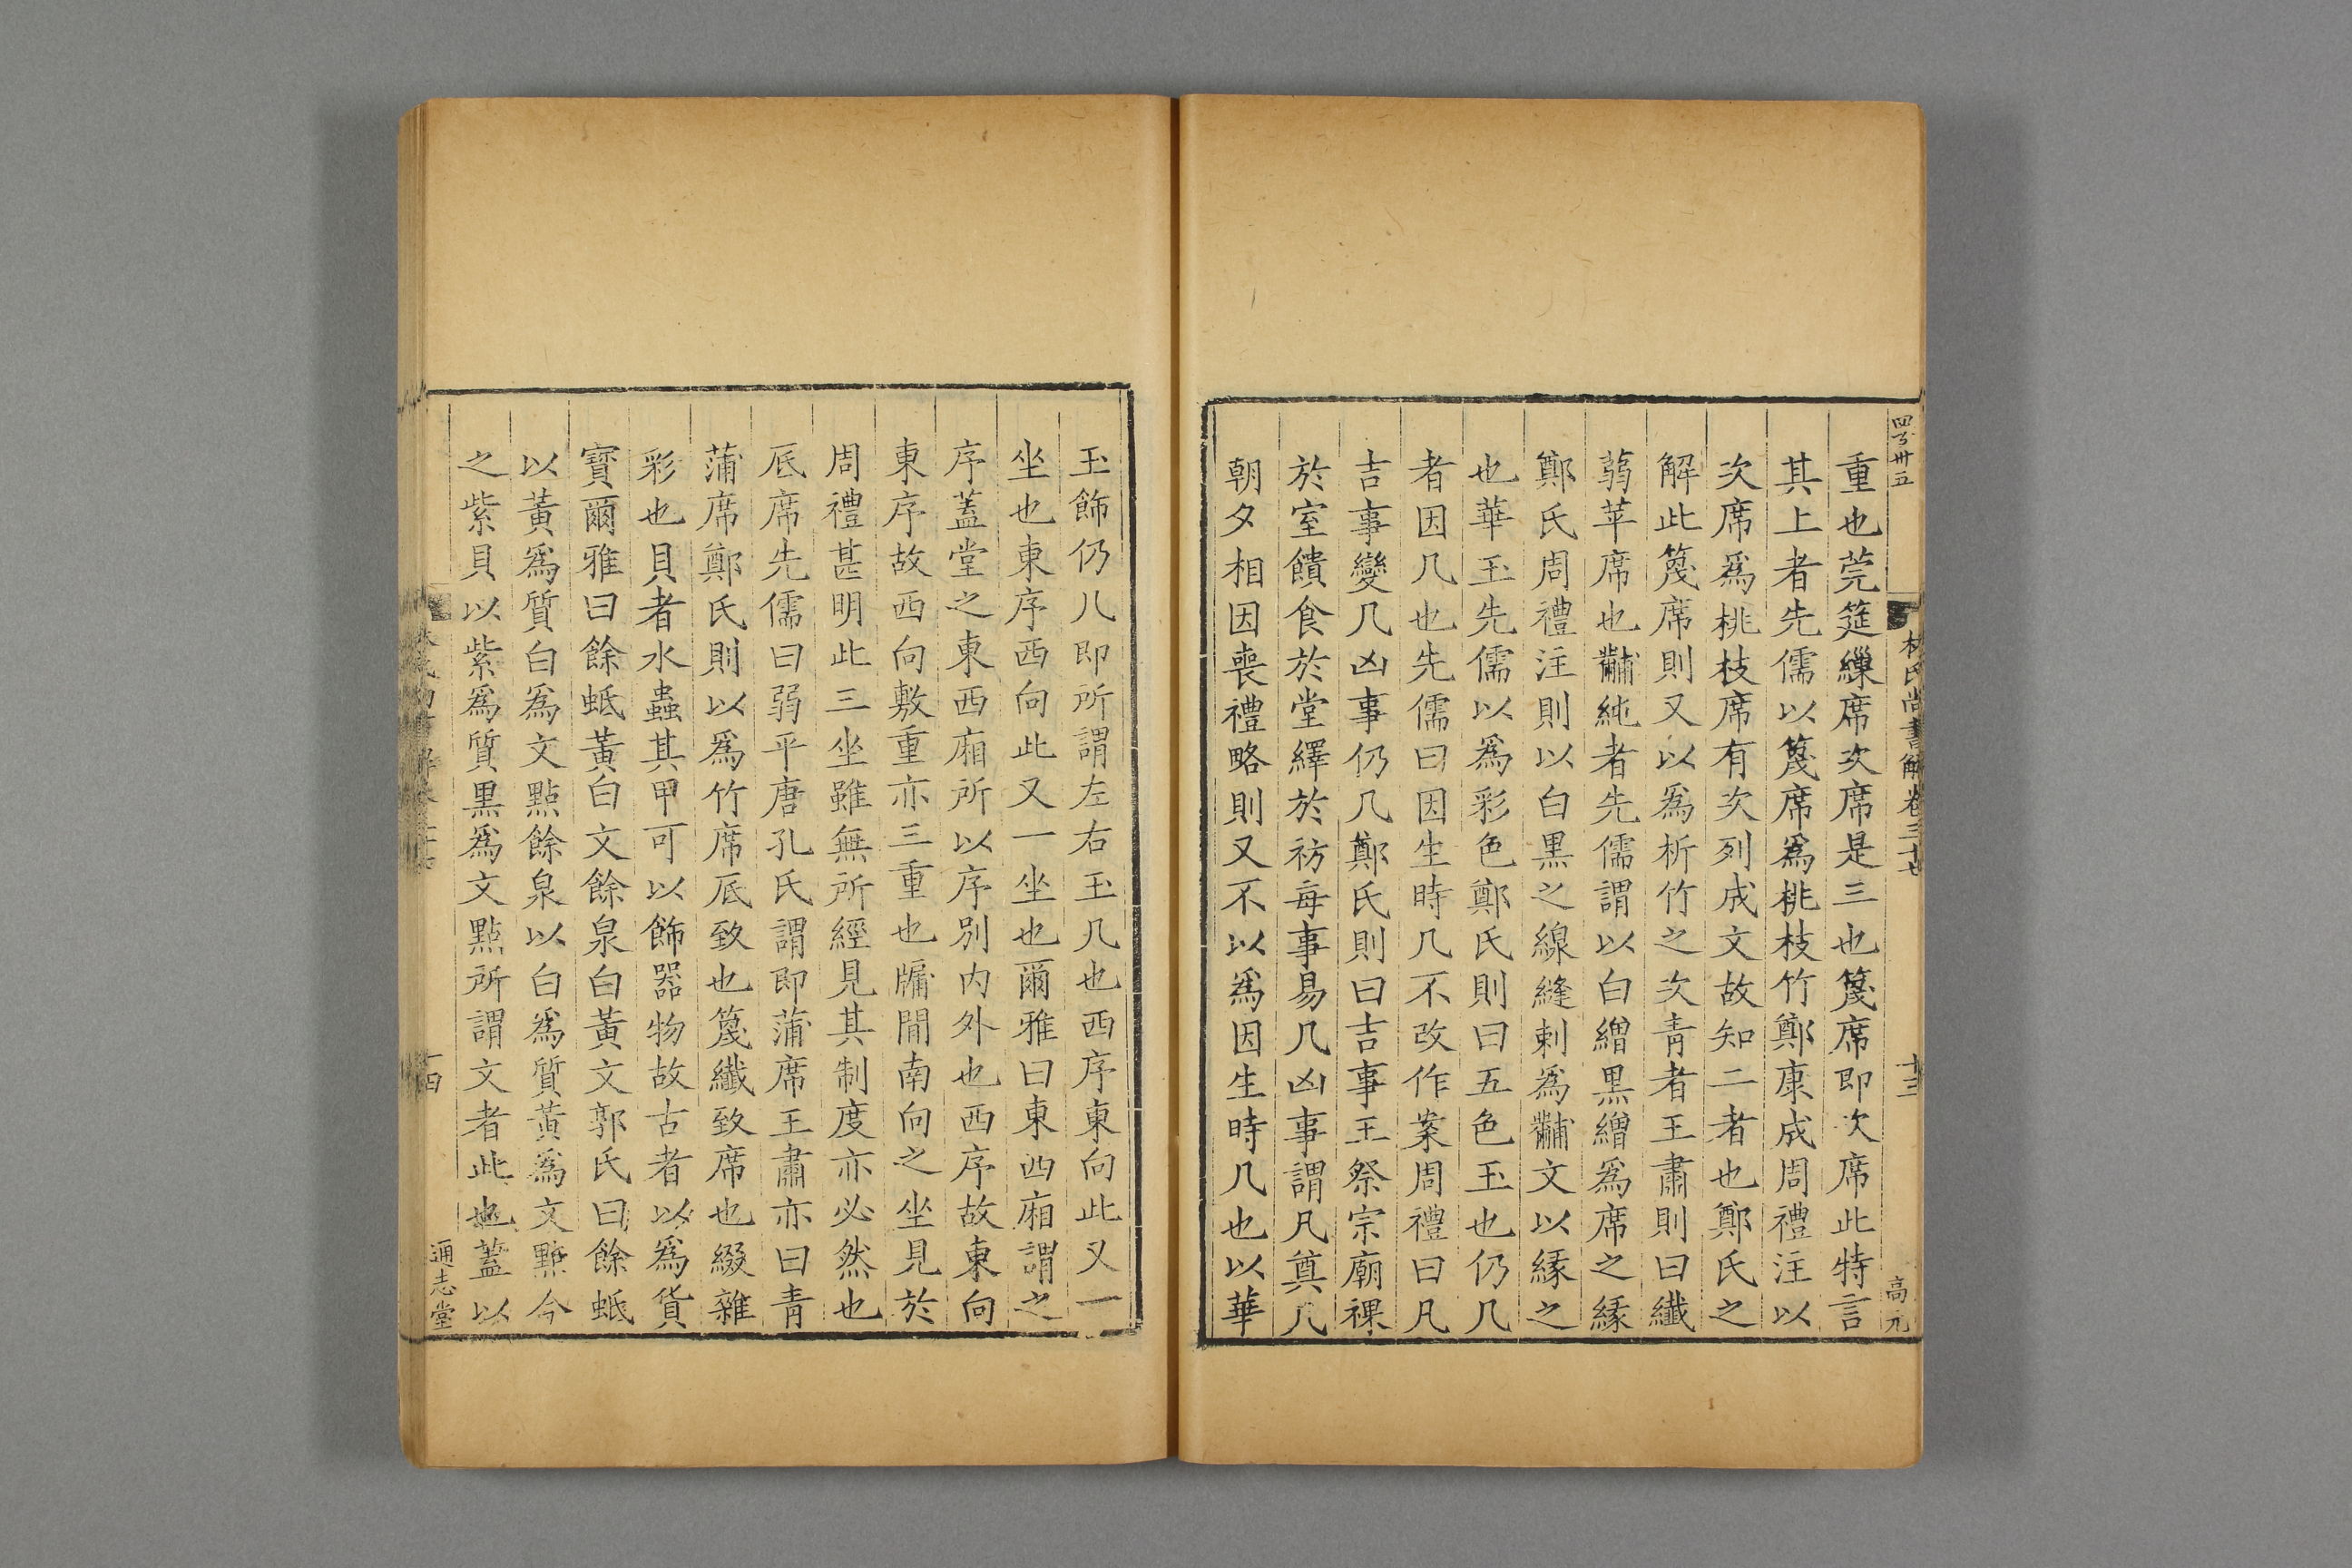 四百卅五
林氏尚書解卷三十七
十三
高元
重也莞筵繅席次席是三也篾席即次席此特言
其上者先儒以篾席爲桃枝竹鄭康成周禮注以
次席爲桃枝席有次列成文故知二者也鄭氏之
解此篾席則又以爲析竹之次青者王肅則曰纖
蒻苹席也黼純者先儒謂以白繒黑繒爲席之緣
鄭氏周禮注則以白黑之線縫刺爲黼文以緣之
也華玉先儒以爲彩色鄭氏則曰五色玉也仍几
者因几也先儒曰因生時几不改作案周禮曰凡
吉事變几凶事仍几鄭氏則曰吉事王祭宗廟祼
於室饋食於堂繹於祊每事易几凶事謂凡奠几
朝夕相因喪禮略則又不以爲因生時几也以華
玉飾仍几即所謂左右玉几也西序東向此又一
坐也東序西向此又一坐也爾雅曰東西廂謂之
序蓋堂之東西廂所以序別內外也西序故東向
東序故西向敷重亦三重也牖間南向之坐見於
周禮甚明此三坐雖無所經見其制度亦必然也
厎席先儒曰蒻平唐孔氏謂即蒲席王肅亦曰青
蒲席鄭氏則以爲竹席厎致也篾纖致席也綴雜
彩也貝者水蟲其甲可以飾器物故古者以爲貨
寶爾雅曰餘蚳黃白文餘泉白黃文郭氏曰餘蚳
以黃爲質白爲文點餘泉以白爲質黃爲文點今
之紫貝以紫爲質黑爲文點所謂文者此也蓋以
十四
通志堂